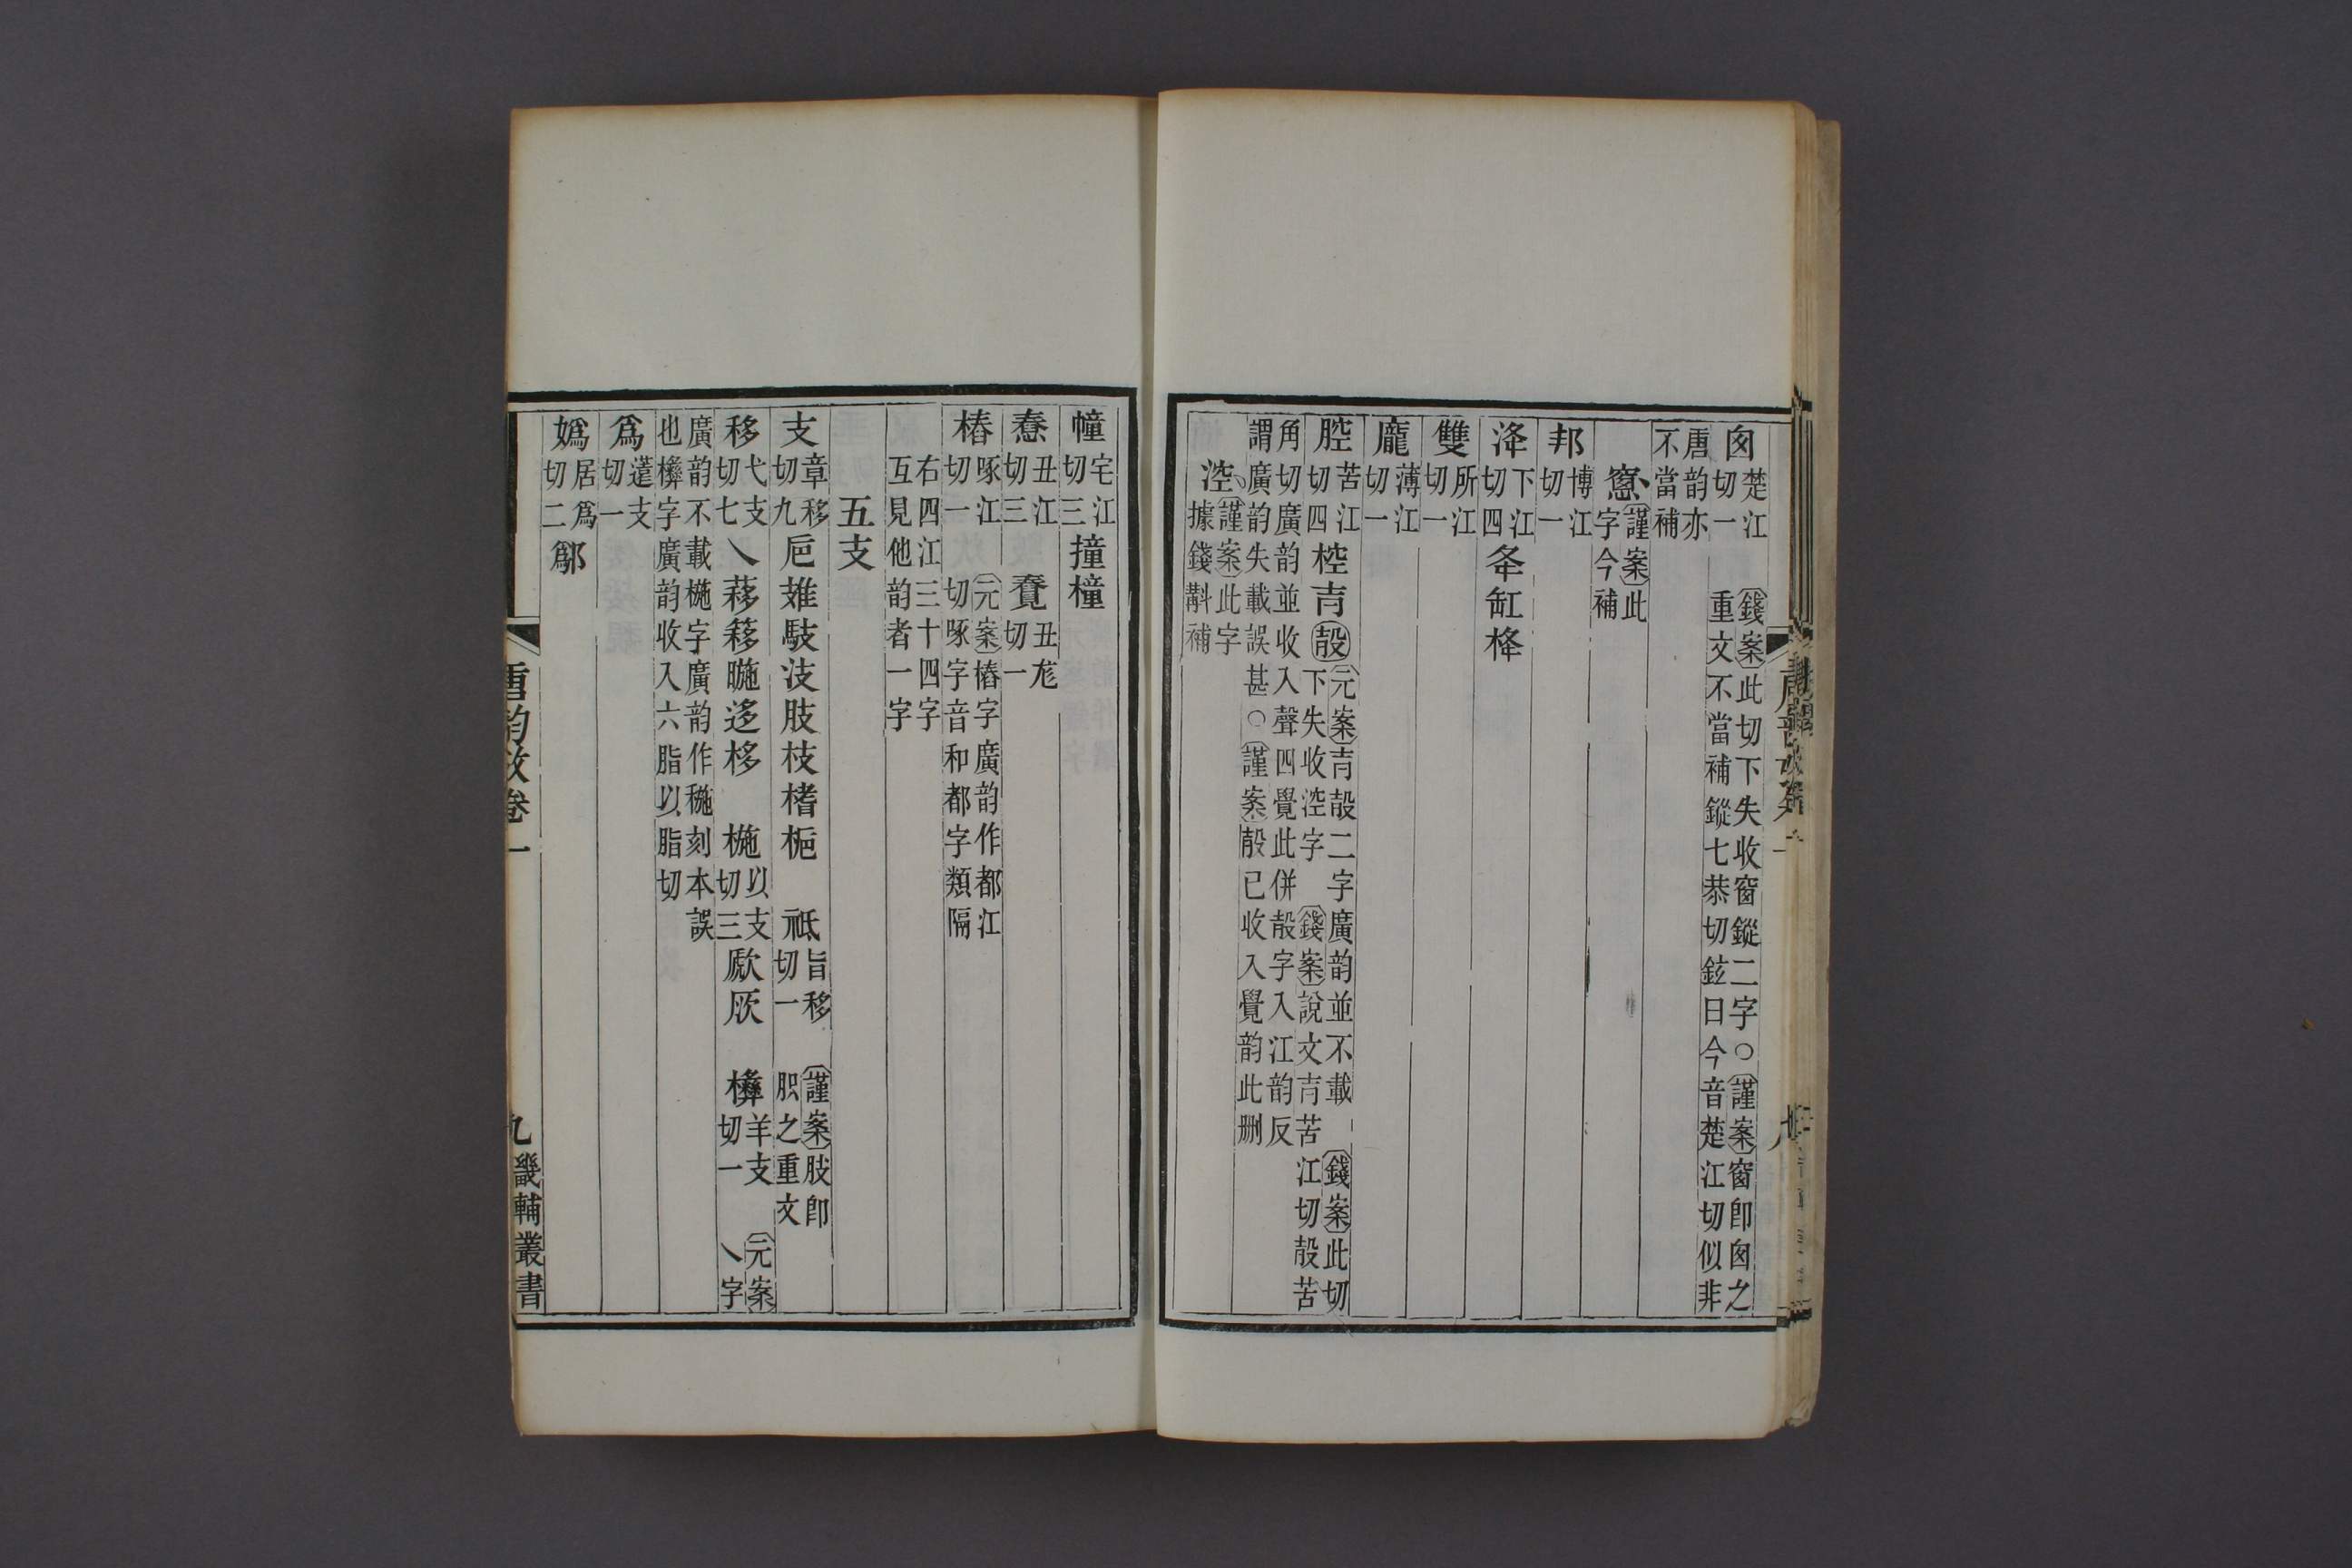 囪楚江切一 錢案此切下失收窗鏦二字○謹案窗卽囪之重文不當補鏦七恭切鉉曰今音楚江切似非
唐韵亦不當補
窻謹案此字今補
邦博江切一
洚下江切四夅缸桻
雙所江切一
龐薄江切一
腔苦江切四椌𡉉㱿元案𡉉㱿二字廣韵並不載下失收涳字 錢案此切錢案說文𡉉苦江切㱿苦
角切廣韵並收入聲四覺此併㱿字入江韵反謂廣韵失載誤甚○謹案㱿已收入覺韵此刪
涳謹案此字據錢斠補
幢宅江切三撞橦
惷丑江切三 覟丑尨切一
樁啄江切一 元案樁字廣韵作都江切啄字音和都字類隔
右四江三十四字互見他韵者一字
五支
支章移切九巵雉馶汥肢枝楮梔 祇旨移切一 謹案肢卽胑之重文
移弋支切七乁䔟簃暆迻栘 椸以支切三㰘厥 㰘羊支切一 元案乁字
廣韵不載椸字廣韵作𥠥刻本誤也㰘字廣韵收入六脂以脂切
爲薳支切一
嬀居爲切二鄬
唐韵攷卷一
九 畿輔叢書